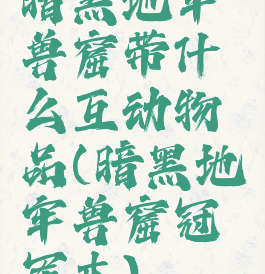 暗黑地牢
兽窟带什
么互动物
品(暗黑地
牢兽窟冠
军本)